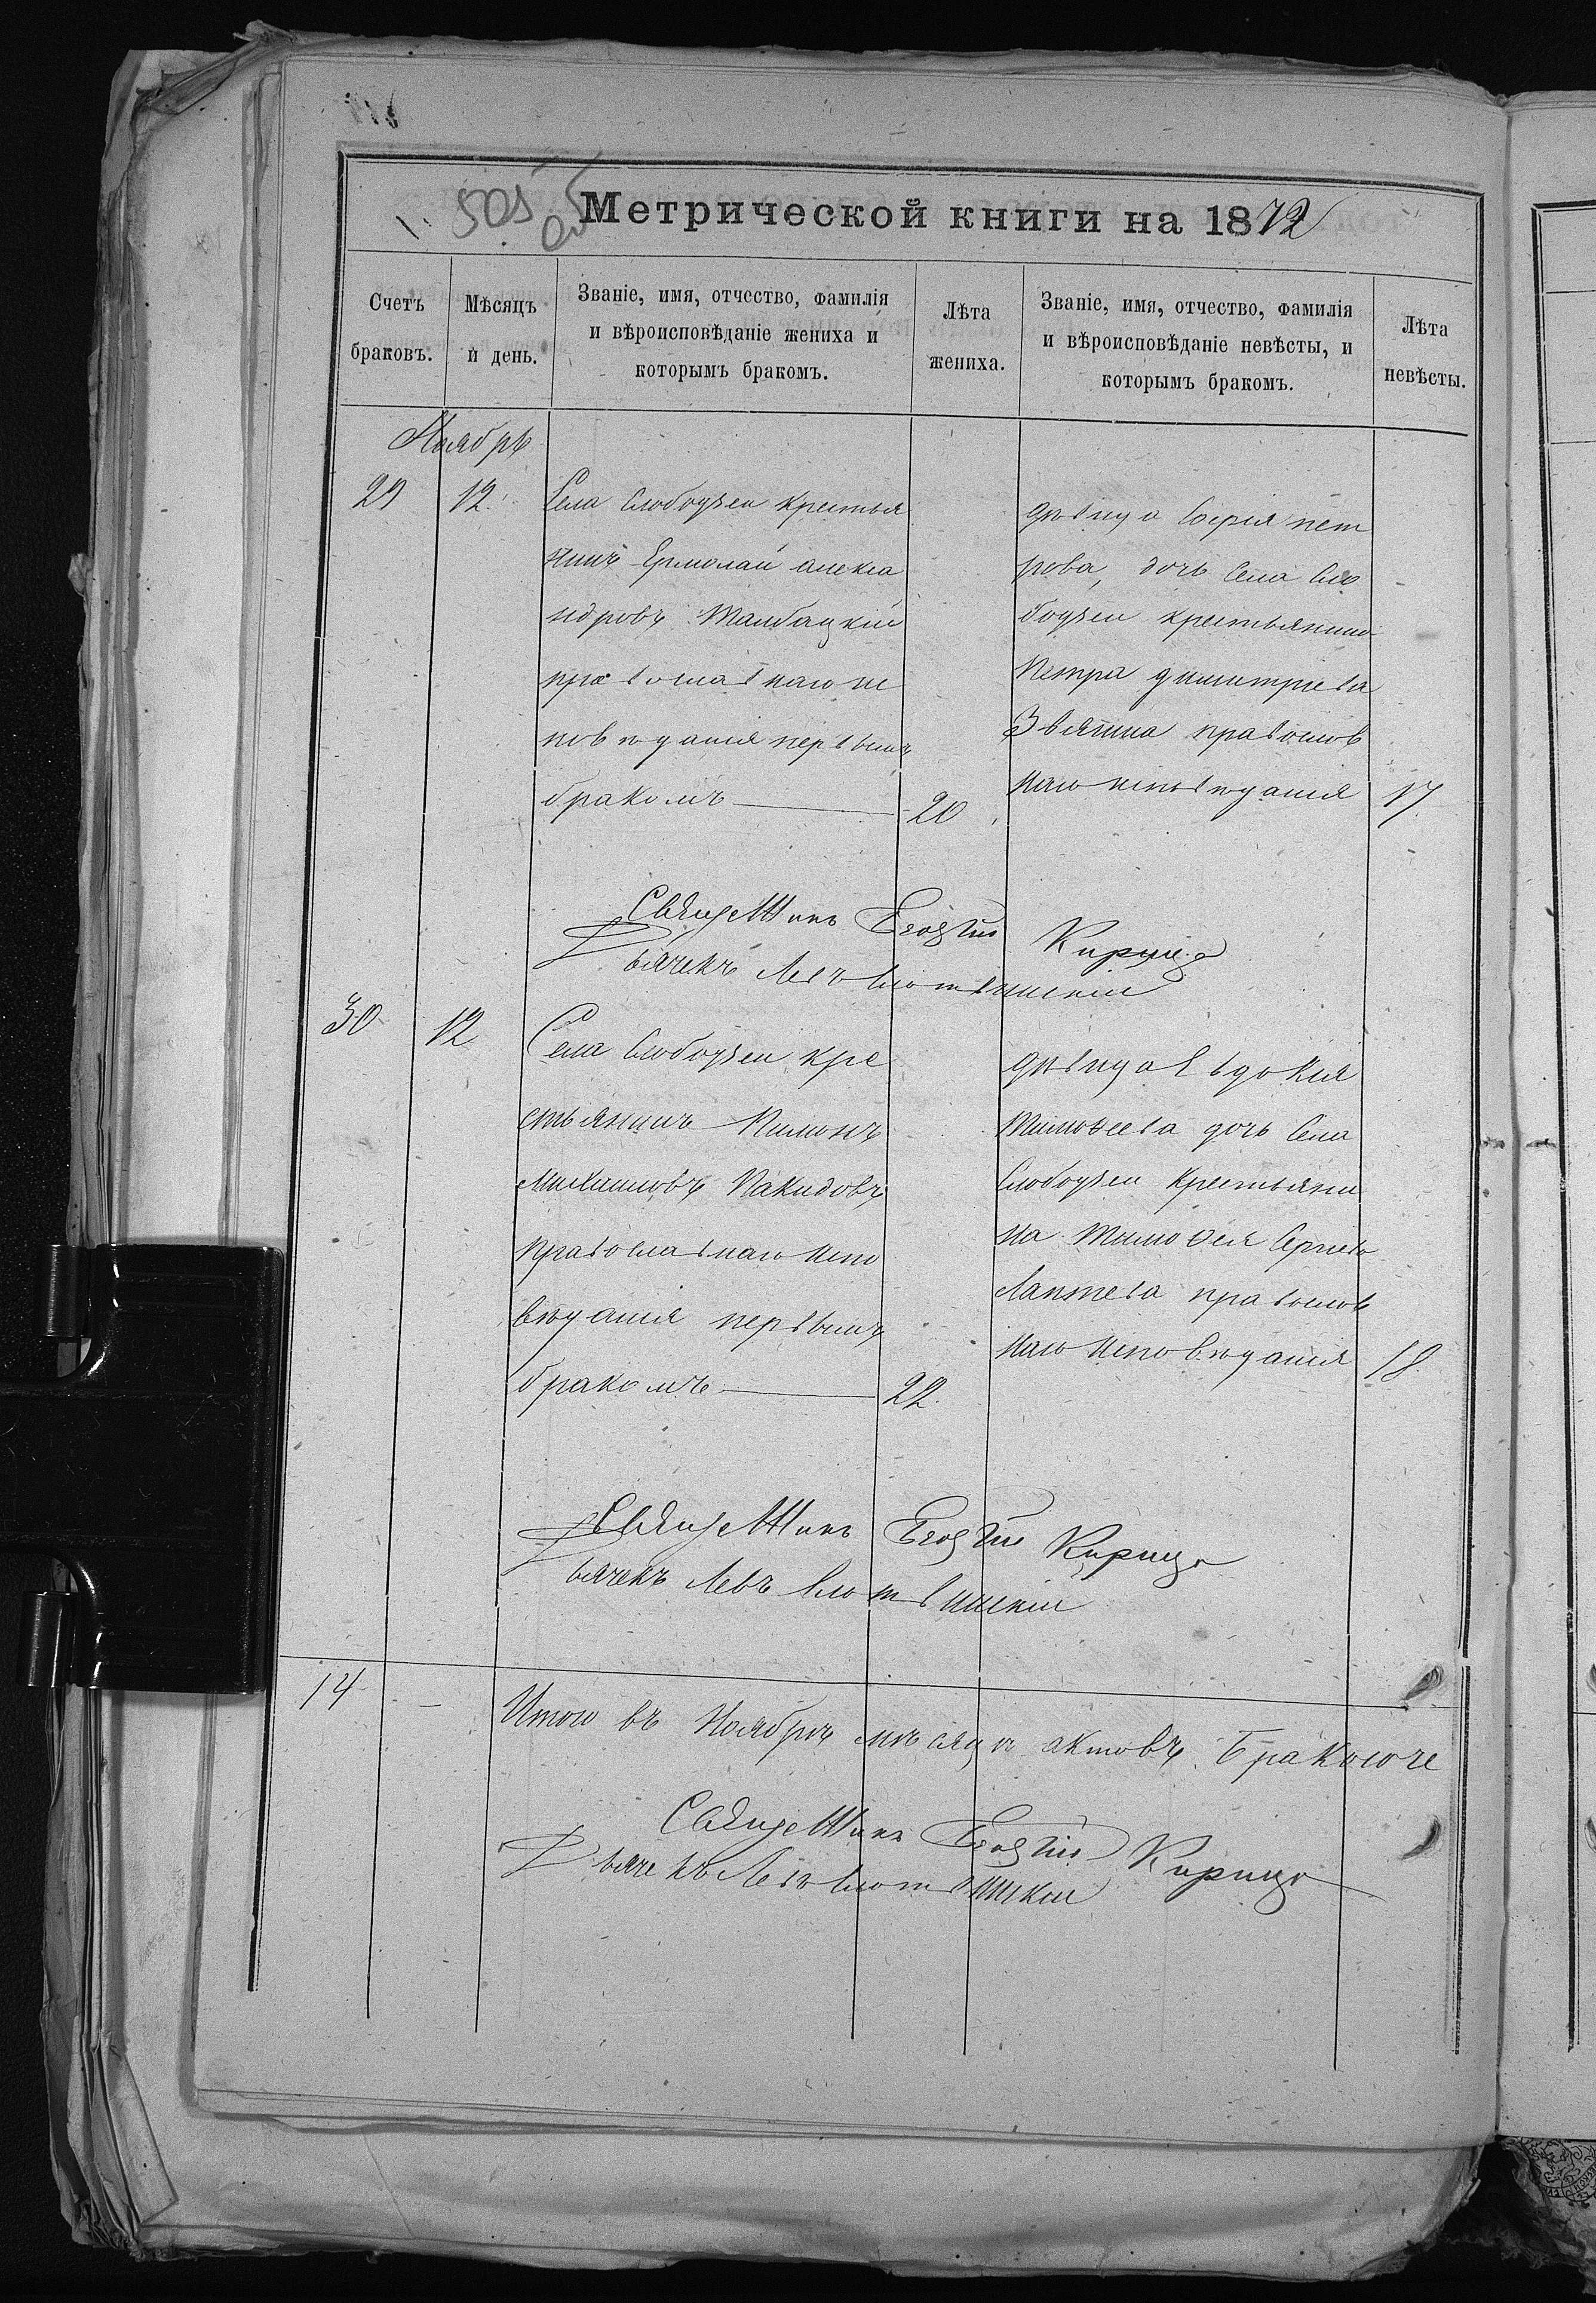 505
об
Метрической книги на 1872
Счетъ браковъ.
Мѣсяцъ и день.
Званіе, имя, отчество, фамилія
и вѣроисповѣданіе жениха и
которымъ бракомъ.
Лѣта жениха.
Званіе, имя, отчество, фамилія
и вѣроисповѣданіе невѣсты, и
которымъ бракомъ.
Лѣта невѣсты.
Ноябрь
29 12.
Села Слободзеи крестья
нинъ Ермолай алекса
ндровъ Тамбацкій
православнаго ис
повѣданія первымъ
бракомъ 20
дѣвица Софія пет
рова, дочь Села Сло
бодзеи крестьянина
Петра димитріева
Звягина православ
наго исповѣданія 17
Священникъ Георгій Кирица
Дьячекъ Левъ Слотвинскій
30 12
Села Слободзеи кре
стьянинъ Пимонъ
Михаиловъ Пакидовъ
православнаго испо
вѣданія первымъ
бракомъ 22.
дѣвица Евдокія
Тимоѳеева дочь Села
Слободзеи Крестьяни
на Тимоѳея Сергіева
Лаптева православ
наго исповѣданія 18.
Священникъ Георгій Кирица
Дьячекъ Левъ Слотвинскій
14 — Итого въ Ноябрѣ мѣсяцѣ актовъ Бракосоче
Священникъ Георгій Кирица
Дьячекъ Левъ Слотвинскій